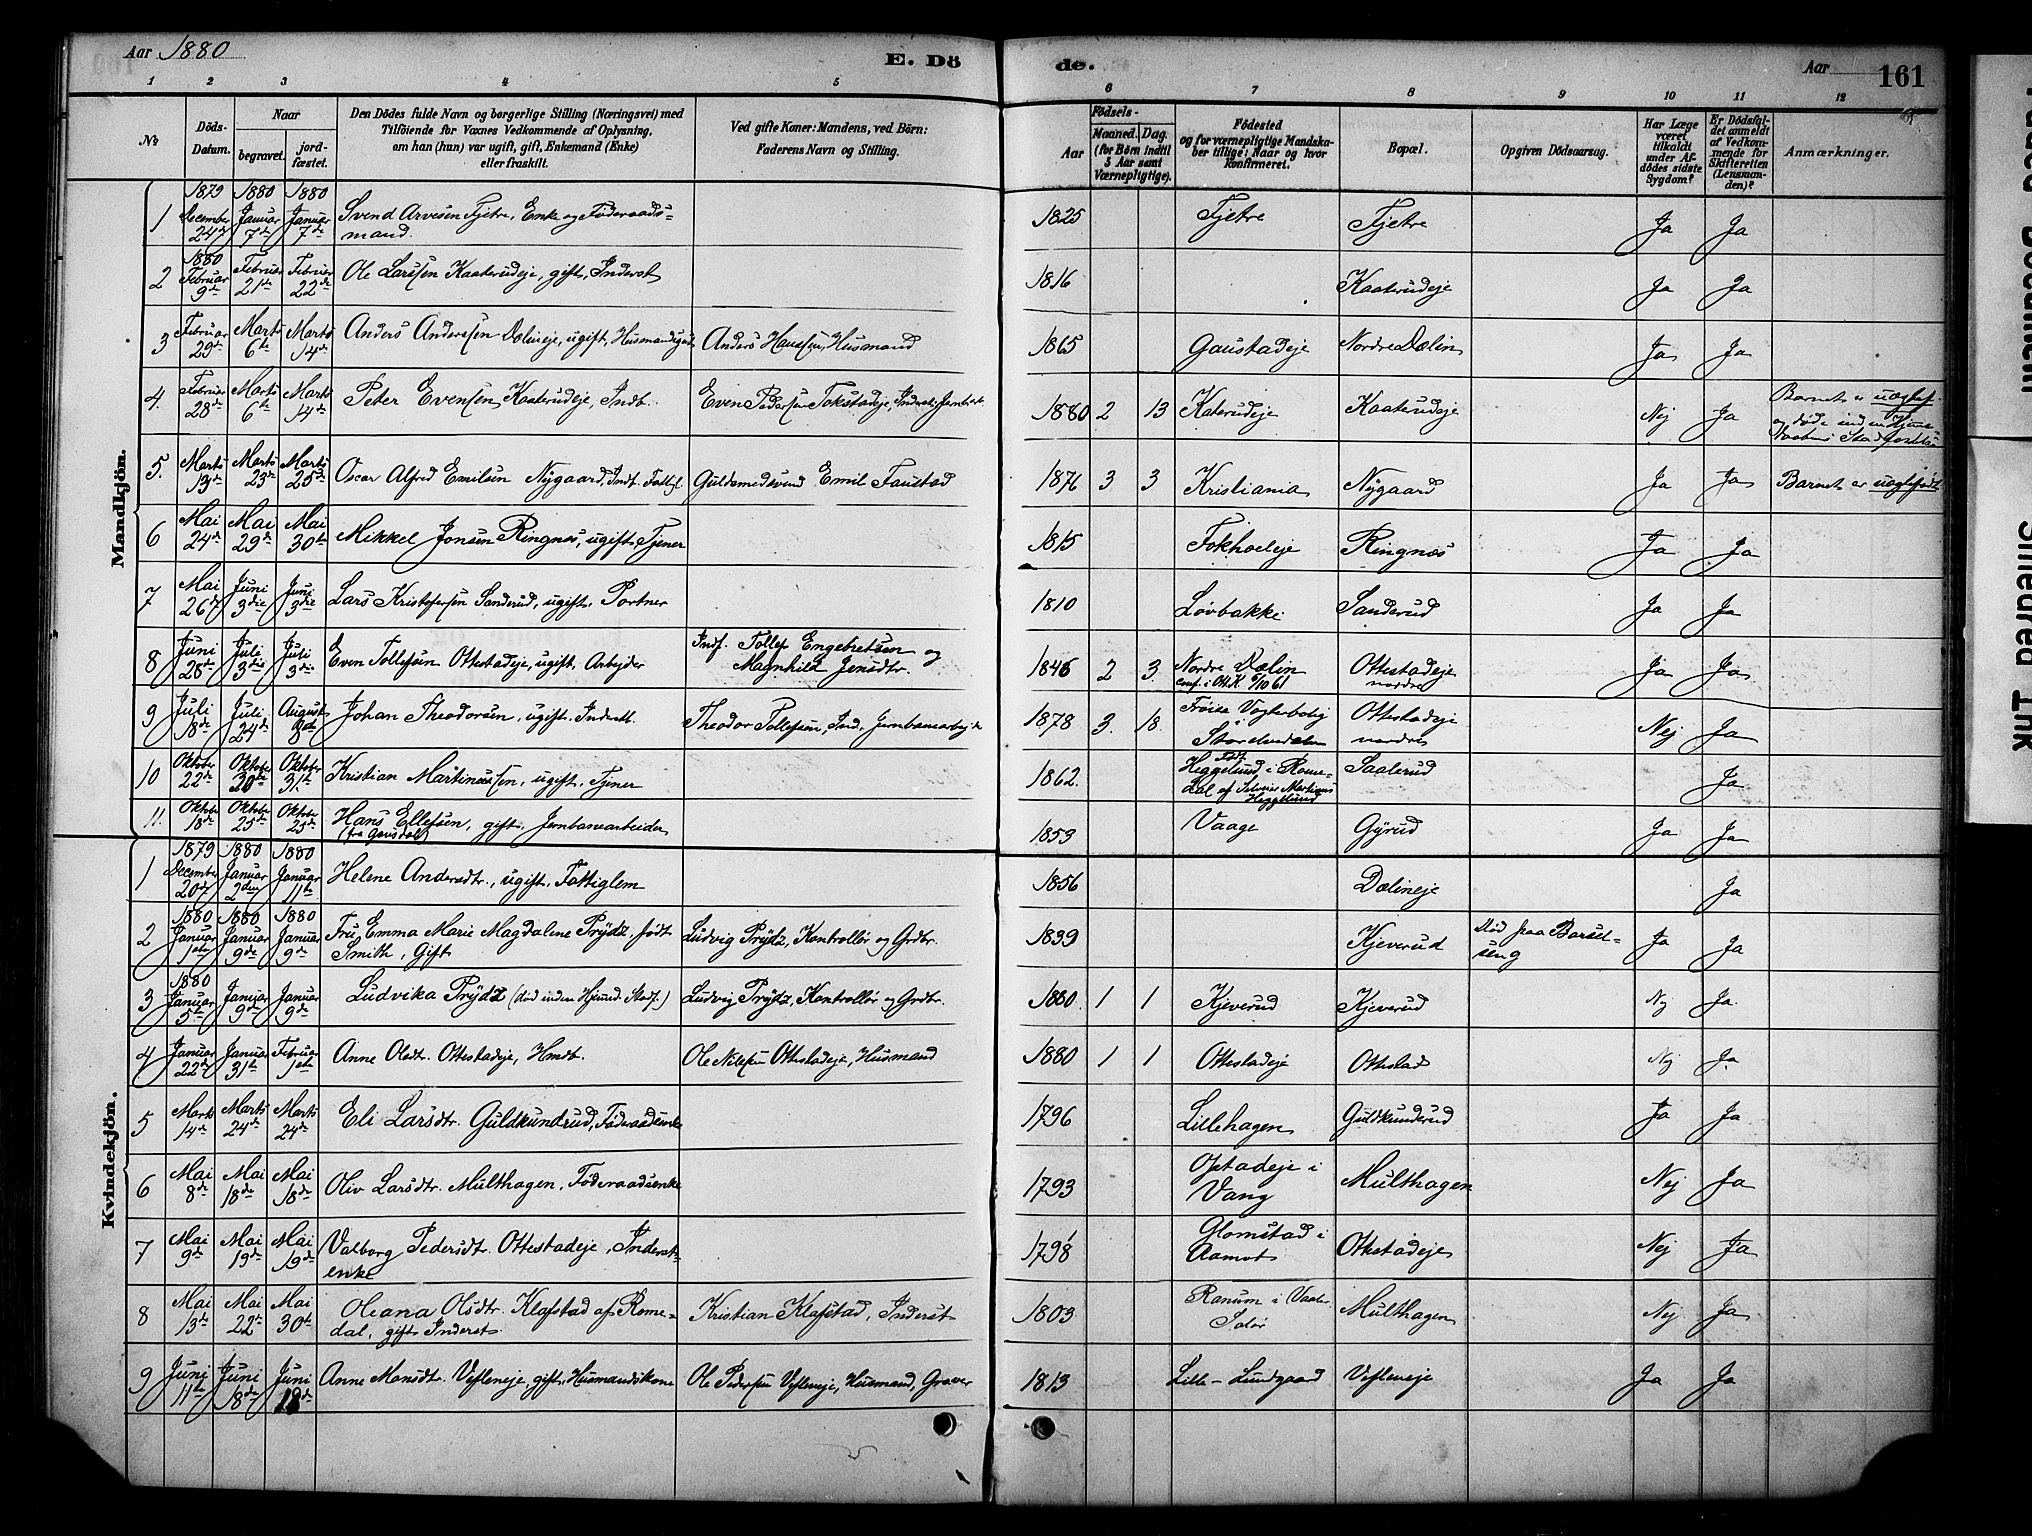 Aar 1880
E. Dö
de.
Aar
161
1 2 3 4 5 6 7 8 9 10 11 12
№
Döds-Datum.
Naar
begravet.
jordfæstet.
Den Dödes fulde Navn og borgerlige Stilling (Næringsvei) med
Tilföiende for Voxnes Vedkommende af Oplysning,
om han (hun) var ugift, gift, Enkemand (Enke)
eller fraskilt.
Ved gifte Koner: Mandens, ved Börn:
Faderens Navn og Stilling.
Födsels-
Aar
Maaned. Dag.
(for Börn indtil
5 Aar samt
Værnepligtige).
Födested
og for værnepligtige Mandskaber
tillige: Naar og hvor
konfirmeret.
Bopæl.
Opgiven Dödsaarsag.
Har Læge
været
tilkaldt
under Afdödes
sidste
Sygdom?
Er Dödsfaldet
anmeldt
af Vedkommende
for
Skifteretten
(Lensmanden)?
Anmærkninger.
Mandkjön.
1 1879 December 24de 1880 Januar 7de 1880 Januar 7de Svend Arvesen Fjetre, Enke og Föderaadsmand. 1825 Fjetre Fjetre Ja Ja
2 1880 Februar 9de Februar 21de Februar 22de Ole Larssen Kaaterudeje, gift, Inderst 1816 Kaaterudeje Ja Ja
3 Februar 29de Marts 6te Marts 14de Anders Anderssen Dölineje, ugift, Anders Hanssen, Husmand 1865 Gaustadeje Nordre Dælin Ja Ja
4. Februar 28de Marts 6te Marts 14de Peter Evensen Kaaterudeje, Indt. Even Pedersen Fokstadeje, 1880 2 13 Katerudeje Kaaterudeje Nej Ja Barnet er uægtef. og döde
5. Marts 13de Marts 23de Marts 25de Oscar Alfred Emilsen Nygaard, Indt. Fattigl. Guldsmedsvend Emil Faustad 1876 3 3 Kristiania Nygaard Ja Ja Barnet er uægtefödt
6 Mai 24de Mai 29de Mai 30te Mikkel Jonsen Ringnæs, ugift, Tjener 1815 Fokholeje Ringnæs Ja Ja
7 Mai 26de Juni 3die Juni 3die Lars Kristofersen Sanderud, ugift, Portner 1810 Lövbakke Sanderud Ja Ja
8 Juni 28de Juli 3die Juli 3die Even Tollefsen Ottestadeje, ugift, Arbejder Indf. Tollef Engebretsen og Magnhild Jensdtr. 1846 2 3. Nordre Dælin conf. i Ott.K. 6/10 61 Ottestadeje nordre Ja Ja
9 Juli 18de Juli 24de August 8de Johan Theodorsen, ugift. Inderstb. Theodor Tollefsen, Ind. Jernbanearbejde 1878 3. 18. Fröisa Vogterbolig i Storelvedalen Ottestadeje nordre Nej Ja
10 Oktober 22de Oktober 30te Oktober 31te Kristian Martinussen, ugift, Tjener 1862. Födt Heggelund i Romedal af Martinus Heggelund Saalerud Ja
11. Oktober 18de Oktober 25de Oktober 25de Hans Ellefsen, gift, Jernbanearbeider (fra Gausdal) 1853 Vaage Gyrud Ja Ja
Kvindekjön.
1 1879 December 20de 1880 Januar 2den 1880 Januar 11te Helene Andersdtr., ugift. Fattiglem 1856 Dælineje Ja
2 1880 Januar 1ste 1880 Januar 9de 1880 Januar 9de Fru Emma Marie Magdalene Prydz, född Smith, Gift Ludvig Prydz, Kontrollör og Grdbr. 1839 Kjeverud Död paa Barselseng Ja Ja
3 1880 Januar 5te Januar 9de Januar 9de Ludvika Prydz (död inden Hjemd. Stadf.) Ludvig Prydz, Kontrollör og Grdbr. 1880. 1 1 Kjeverud Kjeverud Nej Ja.
4 Januar 22de Januar 31te Februar 1ste Anne Olsdt. Ottestadeje, Hmdt. Ole Nilssen Ottestadeje, Husmand 1880 1 1 Ottestadeje Ottestad Nej Ja.
5 Marts 14de Marts 24de Marts 24de Eli Larsdtr. Guldkundrud, Föderaadsenke 1796 Lillehagen Guldkunderud Ja Ja
6 Mai 8de Mai 18de Mai 18de Oliv Larsdtr. Multhagen, Föderaadsenke 1793 Opstadeje i Vang Multhagen Nej Ja
7 Mai 9de Mai 19de Mai 19de Valborg Pedersdtr. Ottestadeje, Inderstenke 1798 Glomstad i Aamot Ottestadeje Nej Ja
8 Mai 13de Mai 22de Mai 30te Oleana Olsdtr. Klafstad af Romedal, gift, Inderst. Kristian Klafstad, Inderst 1803 Ranum i Vaaler Solör Multhagen Nej Ja
9 Juni 11te Juni 18de Juni 18de Anne Monsdtr. Vefleneje, gift, Husmandskone Ole Pedersen Vefleneje, Husmand, Graver 1813 Lille-Lundgaard Vefleneje Ja Ja